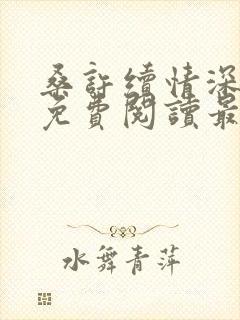 桑許續情深
免費閱讀最
水舞青萍